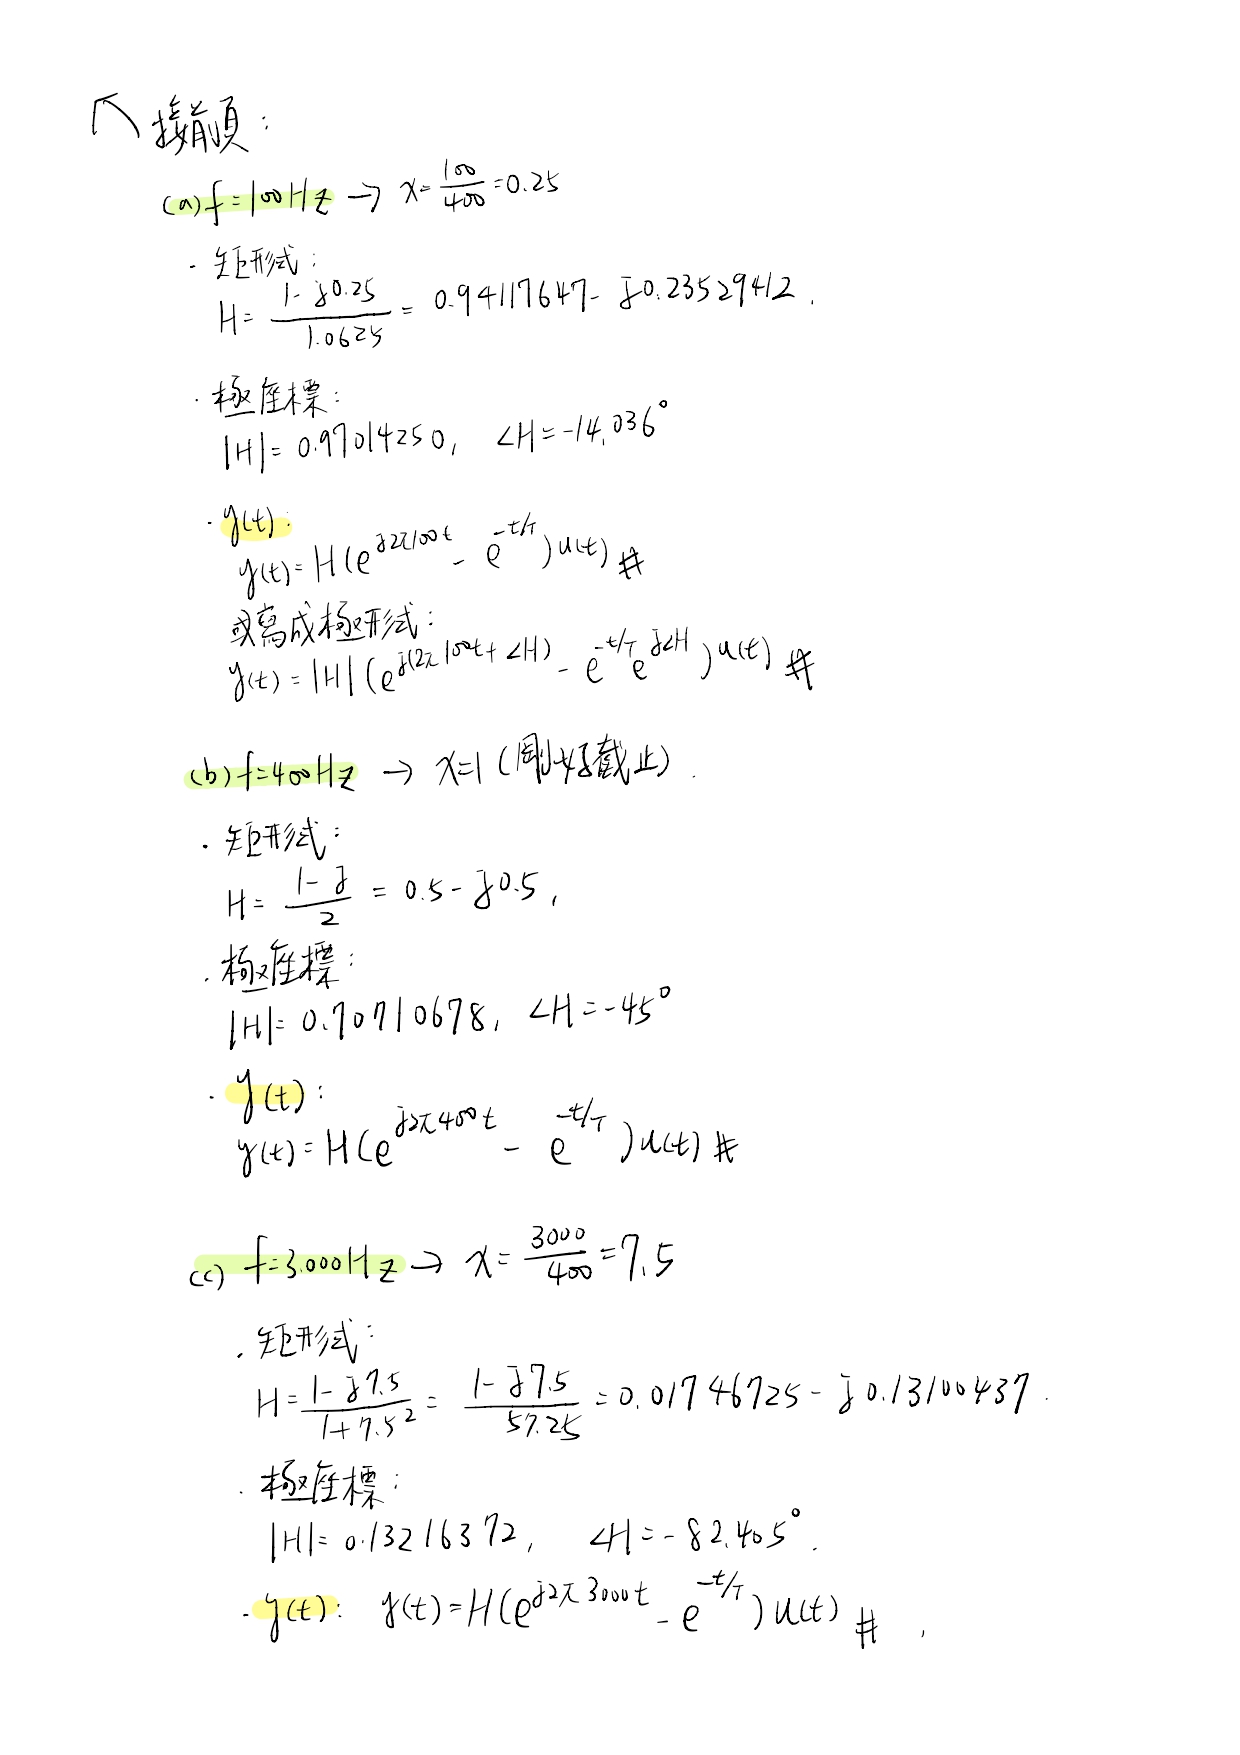 接前頁:
(a) f=100Hz → x=100/400=0.25
· 矩形式:
H=(1-j0.25)/1.0625=0.94117647-j0.23529412.
· 極座標:
|H|=0.97014250, ∠H=-14.036°
· y(t):
y(t)=H(e^{j2π100t}-e^{-t/T})u(t) #
或寫成極形式:
y(t)=|H|(e^{j(2π100t+∠H)}-e^{-t/T}e^{j∠H})u(t) #
(b) f=400Hz → x=1 (剛好截止).
· 矩形式:
H=(1-j)/2=0.5-j0.5,
· 極座標:
|H|=0.70710678, ∠H=-45°
· y(t):
y(t)=H(e^{j2π400t}-e^{-t/T})u(t) #
(c) f=3.000Hz → x=3000/400=7.5
· 矩形式:
H=(1-j7.5)/(1+7.5²)=(1-j7.5)/57.25=0.01746725-j0.13100437.
· 極座標:
|H|=0.13216372, ∠H=-82.405°.
· y(t): y(t)=H(e^{j2π3000t}-e^{-t/T})u(t) #,